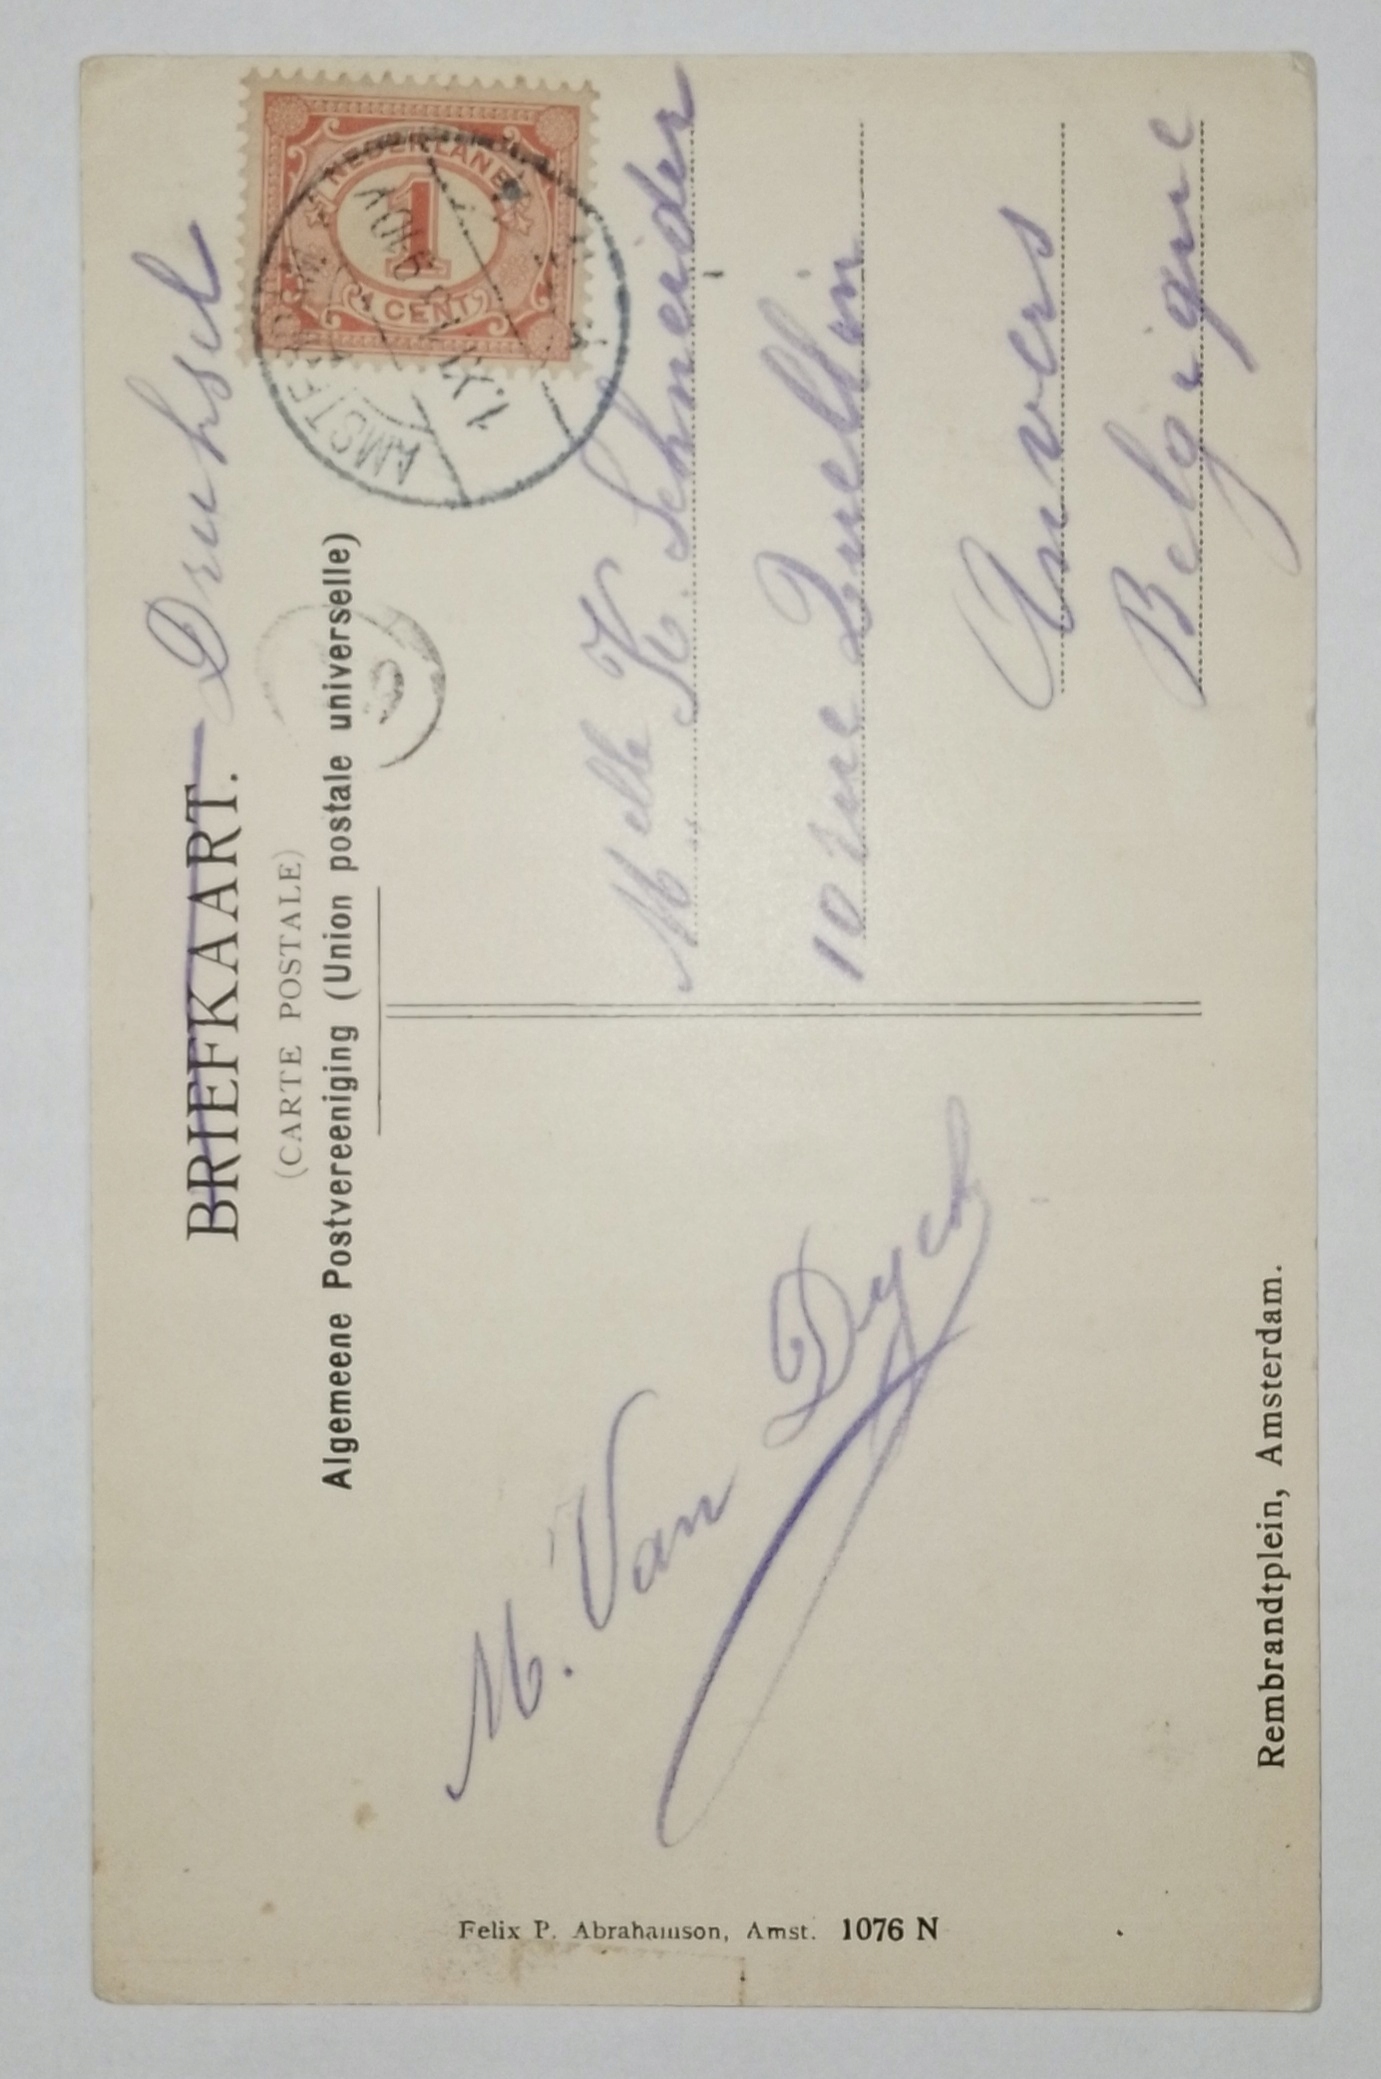 BRIEFKAART. Druksel
(CARTE POSTALE)
Algemeene Postvereeniging (Union postale universelle)
NEDERLAND
1
CENT
AMSTERDAM
Melle K. Schneider
10 rue Quellin
Anvers
Belgique
M. Van Dyck
Rembrandtplein, Amsterdam.
Felix P. Abrahamson, Amst. 1076 N